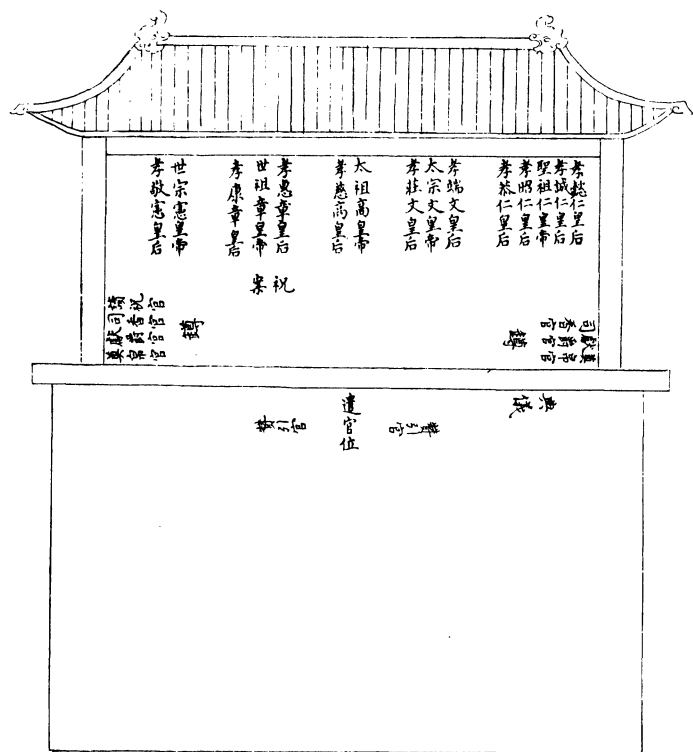 孝懿仁皇后
孝誠仁皇后
聖祖仁皇帝
孝昭仁皇后
孝恭仁皇后
孝端文皇后
太宗文皇帝
孝莊文皇后
太祖高皇帝
孝慈高皇后
孝惠章皇后
世祖章皇帝
孝康章皇后
世宗憲皇帝
孝敬憲皇后
祝案
司香官
獻爵官
奠帛官
罇
罇
讀祝官
司香官
獻爵官
奠帛官
典儀
贊引官
遣官位
贊引官